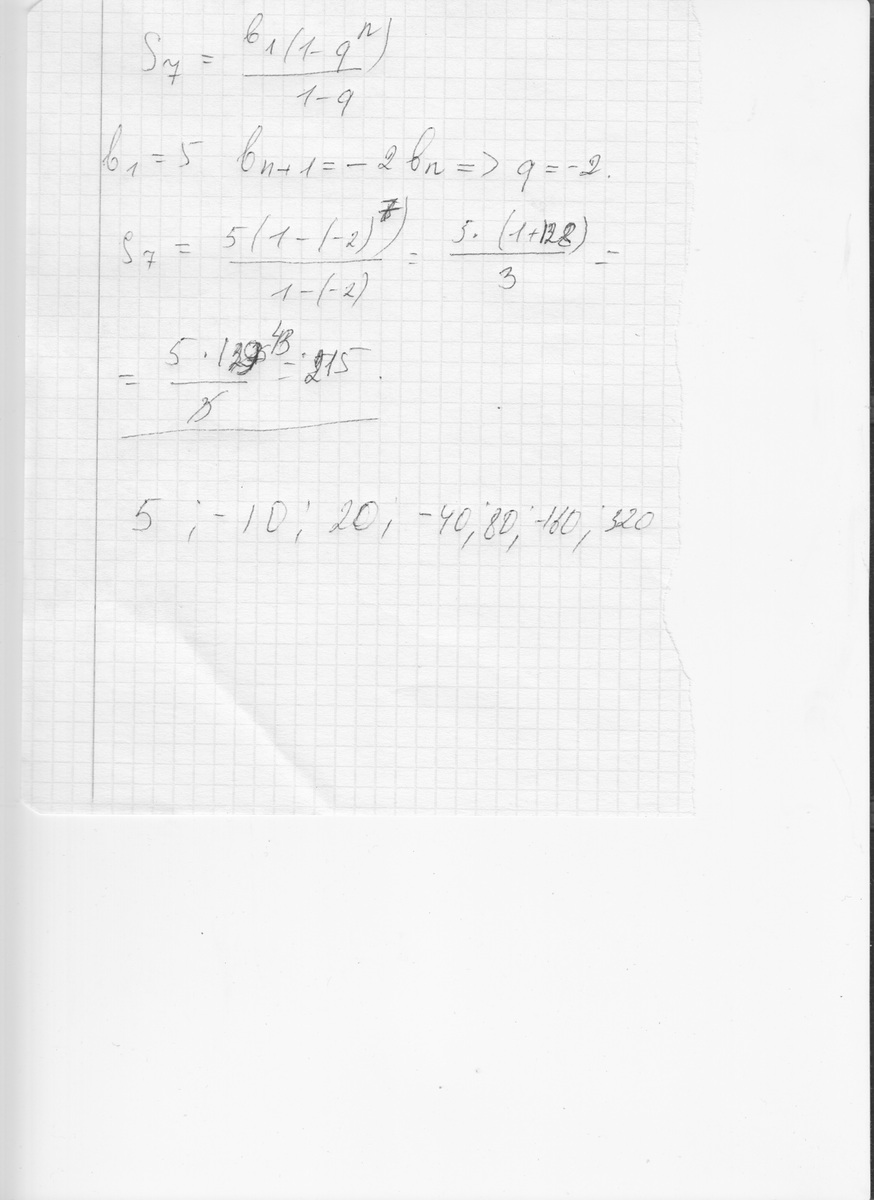 S₇ = b₁(1-qⁿ) / 1-q
b₁ = 5 bₙ₊₁ = -2bₙ => q = -2.
S₇ = 5(1-(-2)⁷) / 1-(-2) = 5·(1+128) / 3 =
= 5·129 43 / 3 = 215.
5; -10; 20; -40; 80; -160; 320